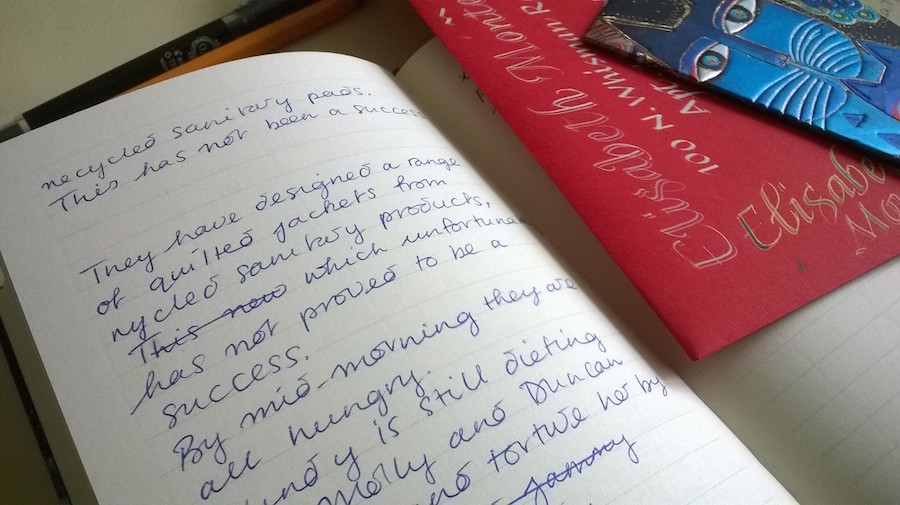 recycled sanitary pads.
This has not been a success
They have designed a range
of quilted jackets from
rycled sanitary products,
This now which unfortunate
has not proved to be a
success.
By mid-morning they are
all hungry.
is still dieting
Molly and Duncan
torture her by
jammy
Elissabeth Monte
100 N. Whisman R
Apt
Elisabe
Mo